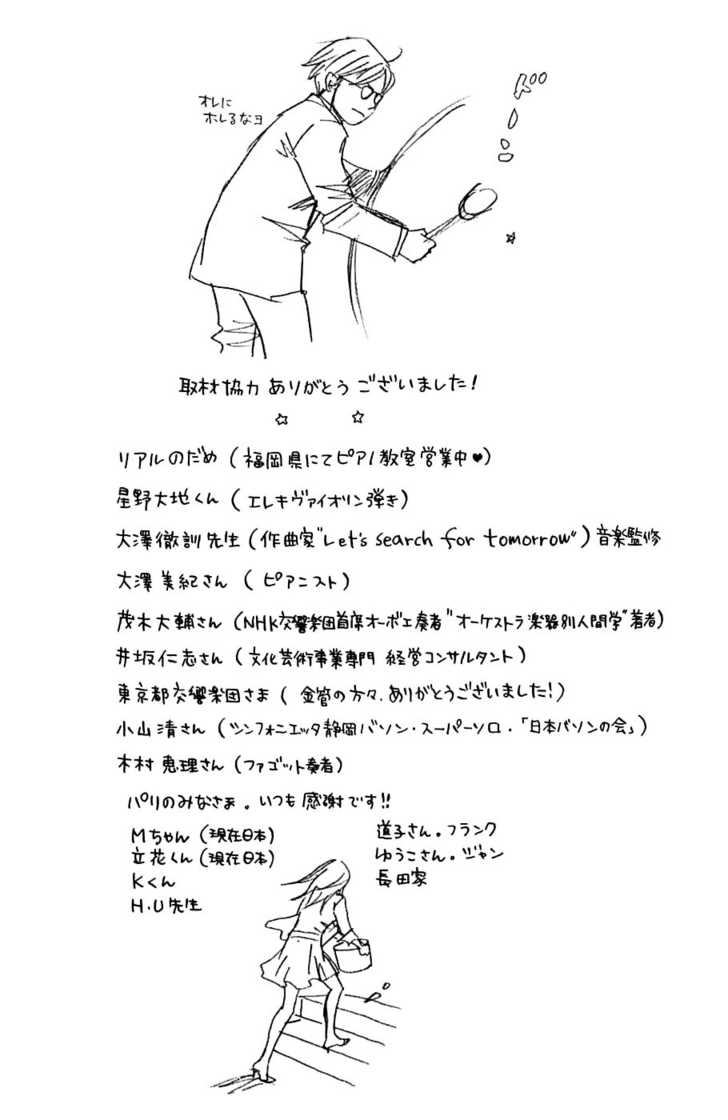 オレに
ホレるなヨ
ドーン
取材協力 ありがとう ございました!
☆ ☆
リアルのだめ (福岡県にてピアノ教室営業中♥)
星野大地くん (エレキヴァイオリン弾き)
大澤徹訓先生 (作曲家"Let's search for tomorrow") 音楽監修
大澤美紀さん (ピアニスト)
茂木大輔さん (NHK交響楽団首席オーボエ奏者"オーケストラ楽器別人間学"著者)
井坂仁志さん (文化芸術事業専門 経営コンサルタント)
東京都交響楽団さま (金管の方々、ありがとうございました!)
小山清さん (シンフォニエッタ静岡バソン・スーパーソロ・「日本バソンの会」)
木村恵理さん (ファゴット奏者)
パリのみなさま。いつも感謝です!!
Mちゃん (現在日本)
立花くん (現在日本)
Kくん
H.U先生
道子さん。フランク
ゆうこさん。ジャン
長田家